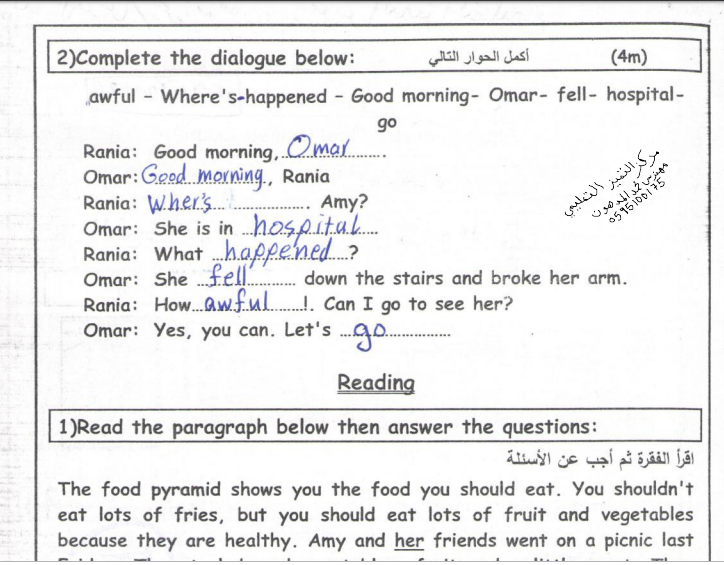 2)Complete the dialogue below: أكمل الحوار التالي (4m)
awful - Where's-happened - Good morning- Omar- fell- hospital-
go
Rania: Good morning, Omar
Omar: Good morning, Rania
Rania: Wher's Amy?
Omar: She is in hospital
Rania: What happened?
Omar: She fell down the stairs and broke her arm.
Rania: How awful!. Can I go to see her?
Omar: Yes, you can. Let's go
مركز التميز التعليمي
0595100175
Reading
1)Read the paragraph below then answer the questions:
اقرأ الفقرة ثم أجب عن الأسئلة
The food pyramid shows you the food you should eat. You shouldn't
eat lots of fries, but you should eat lots of fruit and vegetables
because they are healthy. Amy and her friends went on a picnic last